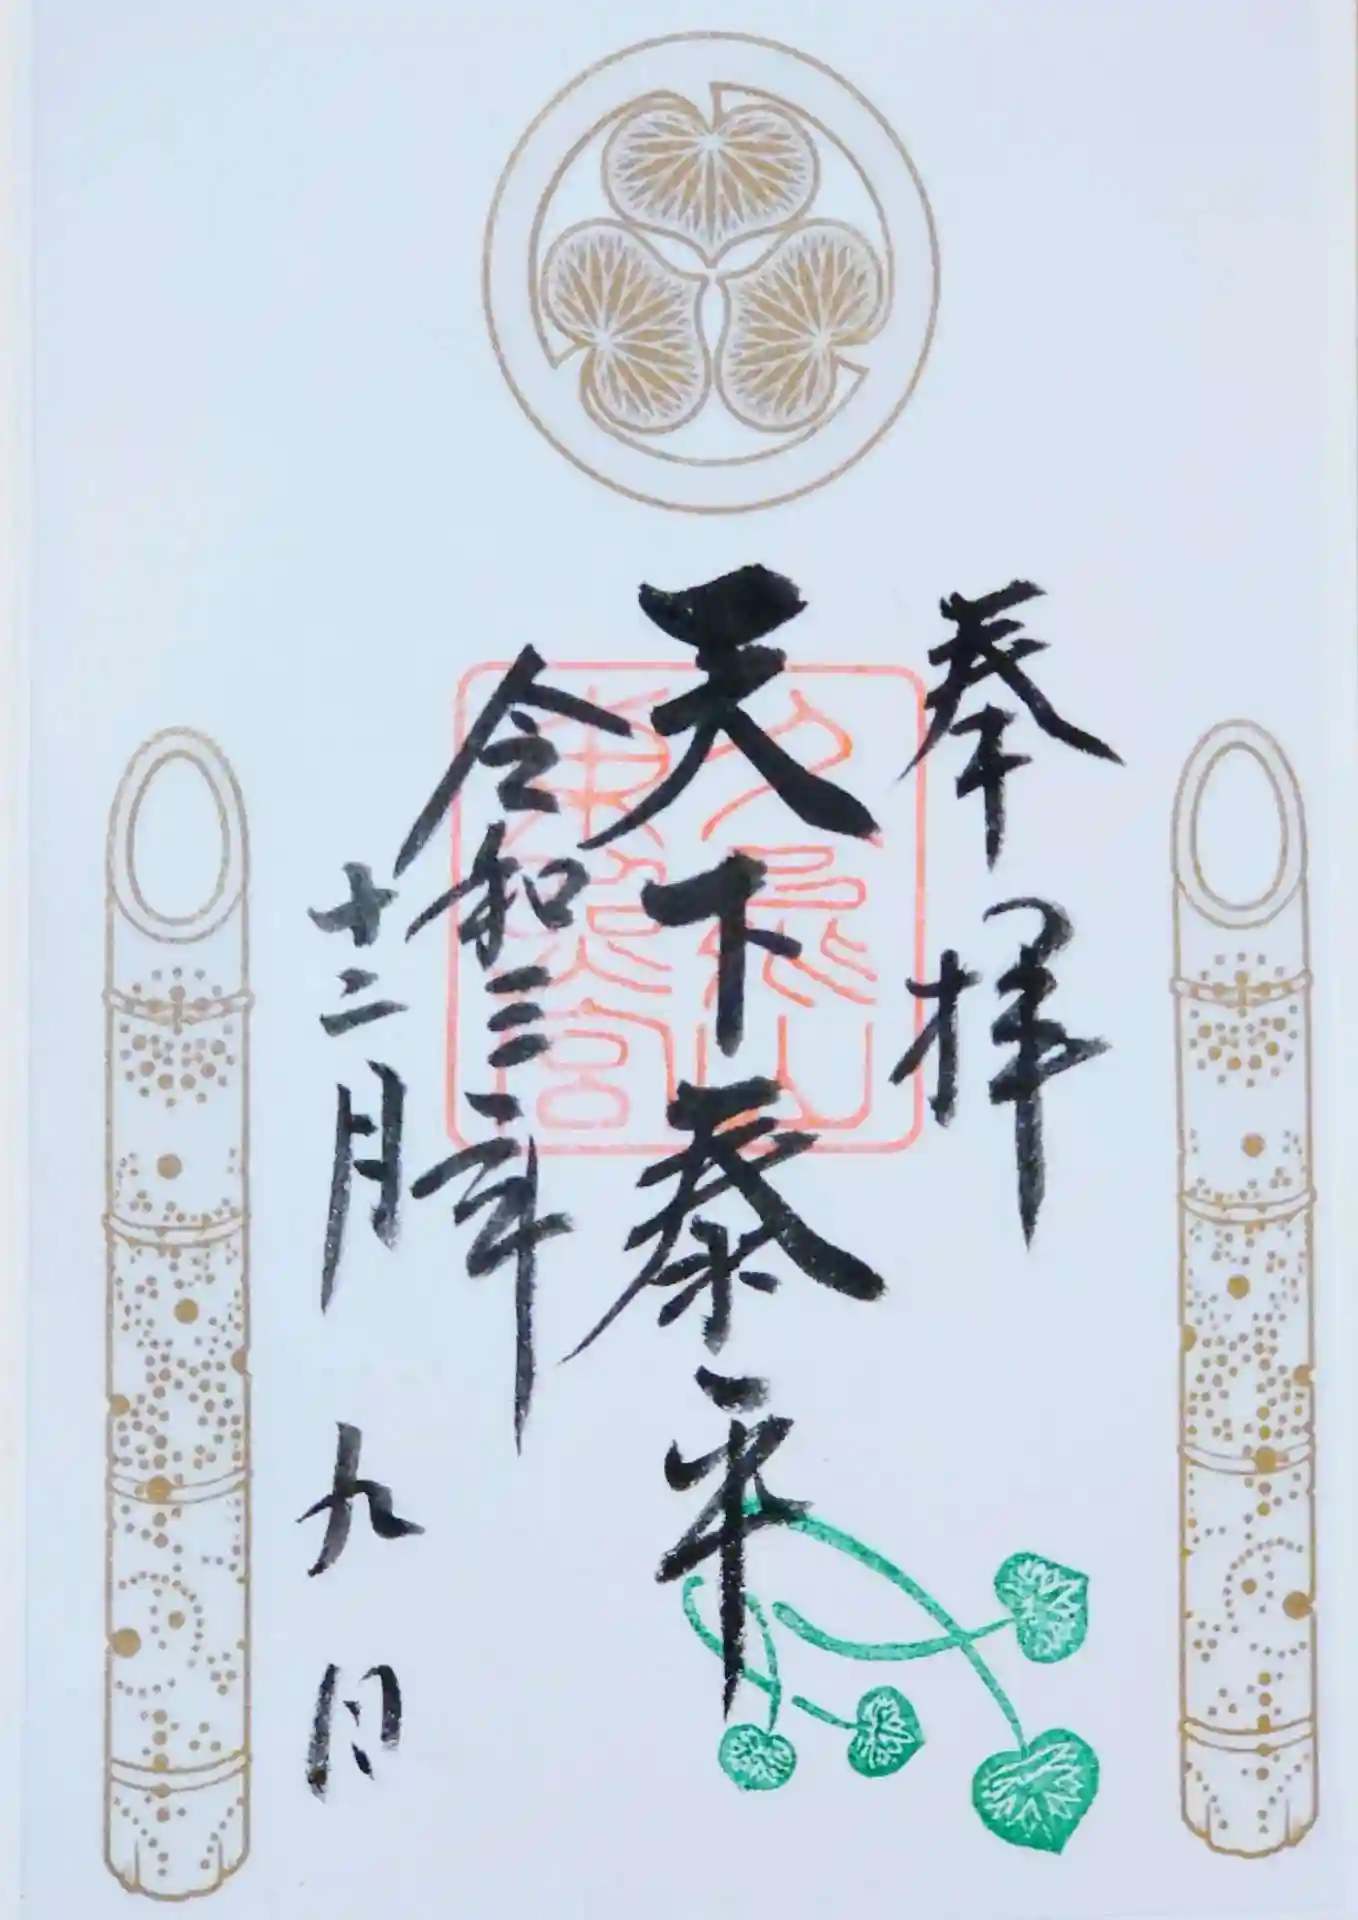 奉拝
天下泰平
令和三年
十二月九日
久能山
東照宮